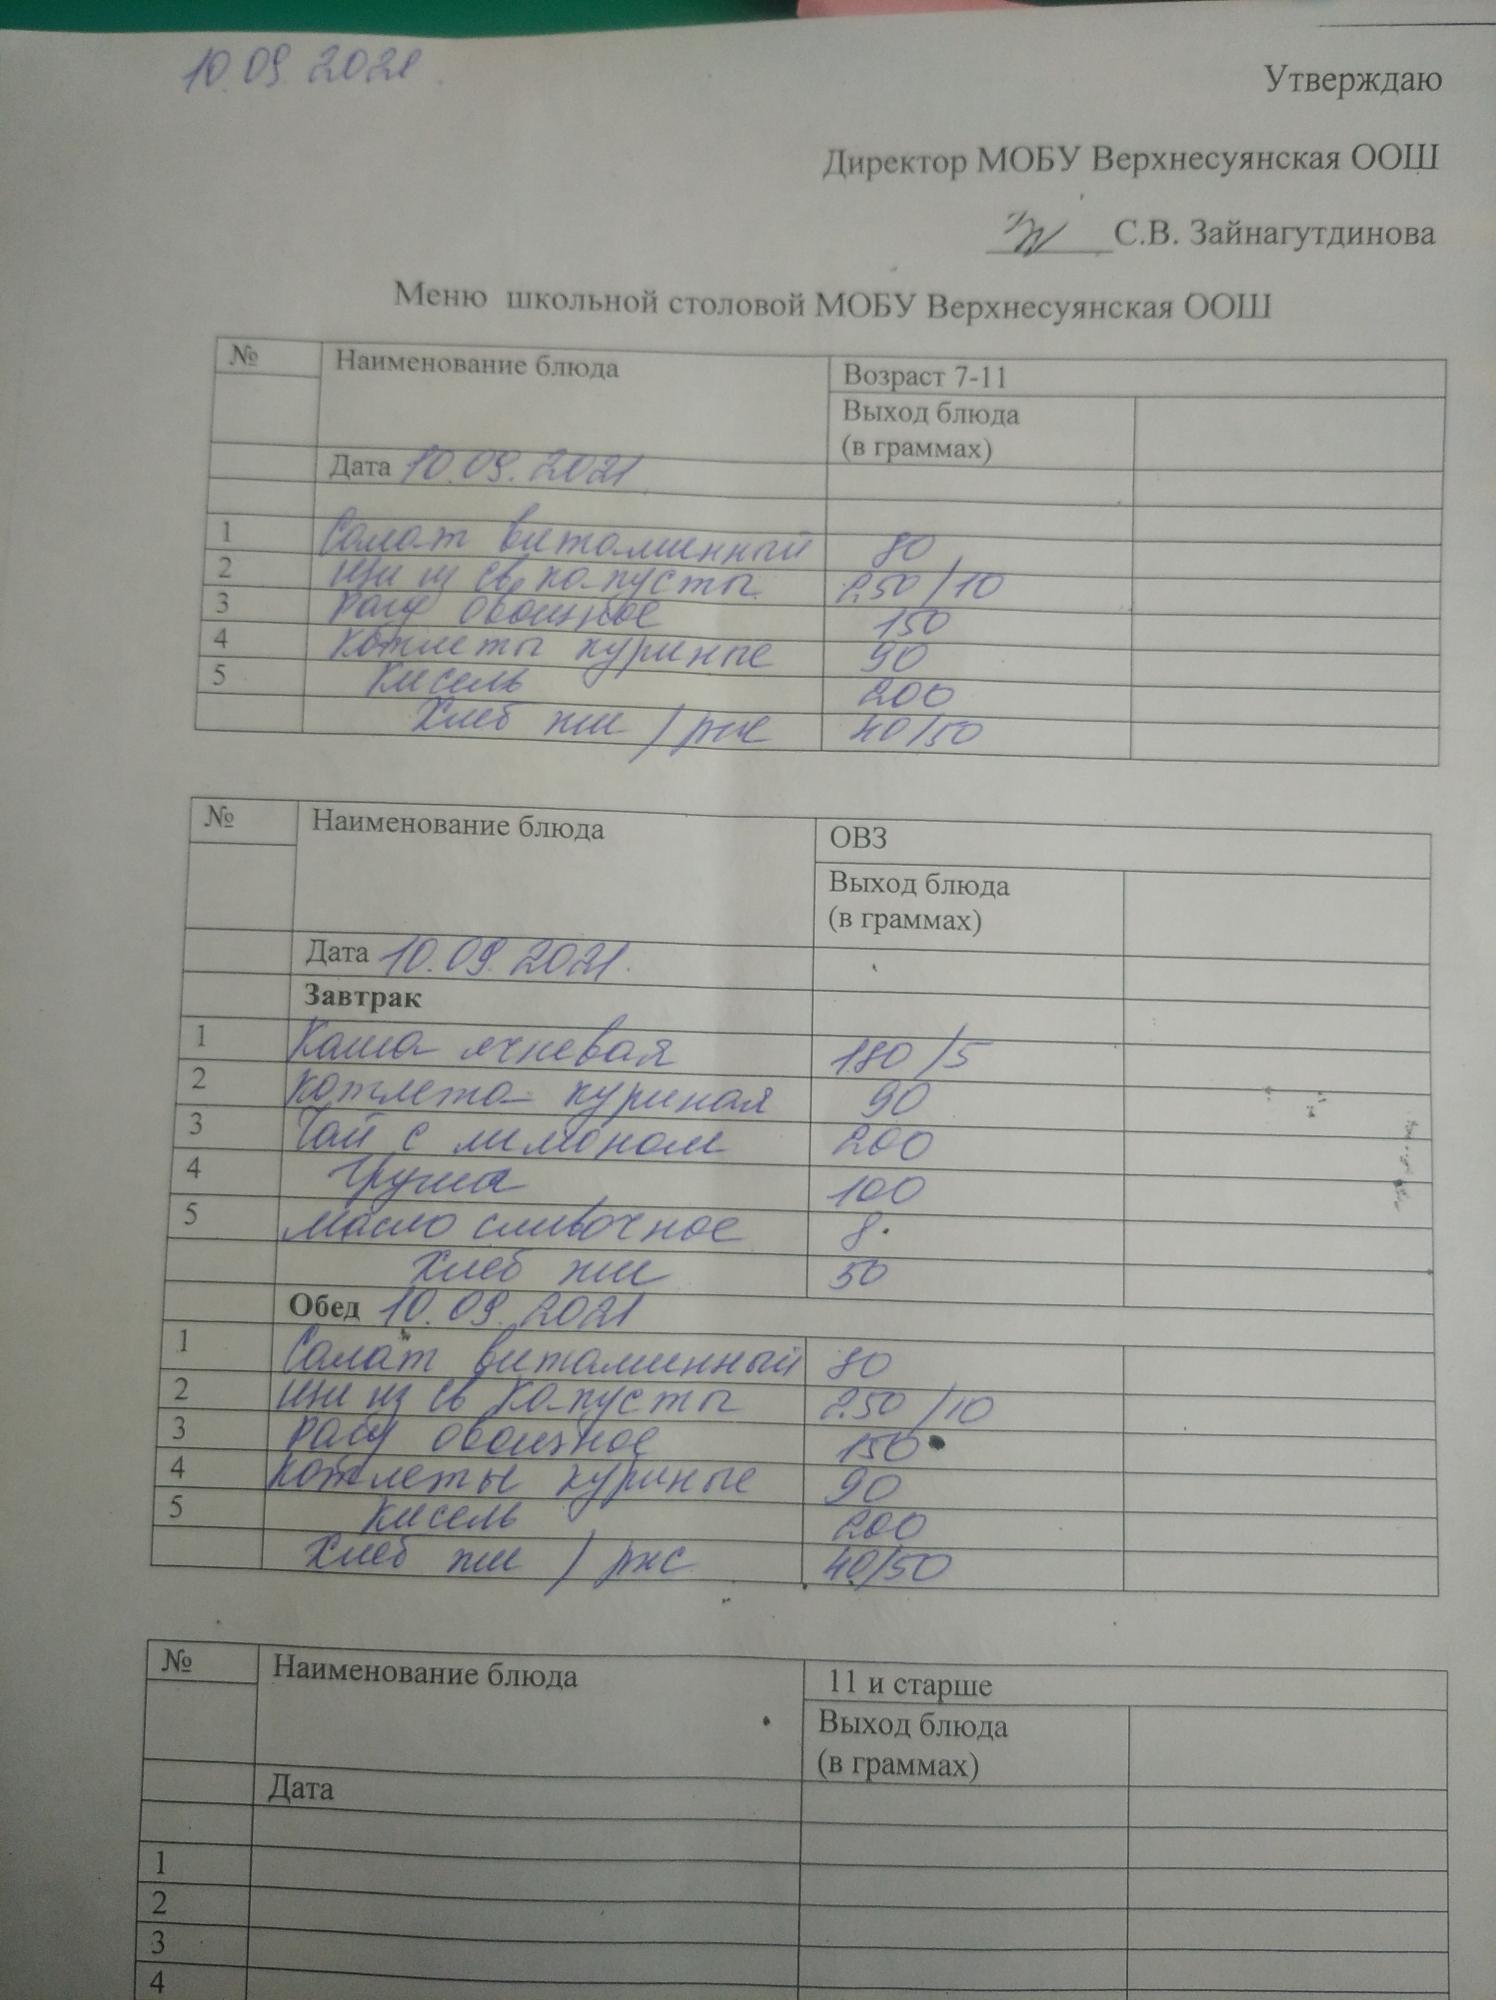 10.09.2021
Утверждаю
Директор МОБУ Верхнесуянская ООШ
С.В. Зайнагутдинова
Меню школьной столовой МОБУ Верхнесуянская ООШ
№ Наименование блюда Возраст 7-11
Выход блюда
(в граммах)
Дата 10.09.2021
1 Салат витаминный 80
2 щи из св. капусты 250/10
3 рагу овощное 150
4 котлеты куриные 90
5 кисель 200
Хлеб пш / рж 40/50
№ Наименование блюда ОВЗ
Выход блюда
(в граммах)
Дата 10.09.2021.
Завтрак
1 Каша ячневая 180/5
2 котлета куриная 90
3 Чай с лимоном 200
4 Груша 100
5 масло сливочное 8
Хлеб пш 50
Обед 10.09.2021
1 Салат витаминный 80
2 щи из св капусты 250/10
3 рагу овощное 150
4 котлеты куриные 90
5 кисель 200
Хлеб пш / рж 40/50
№ Наименование блюда 11 и старше
Выход блюда
(в граммах)
Дата
1
2
3
4